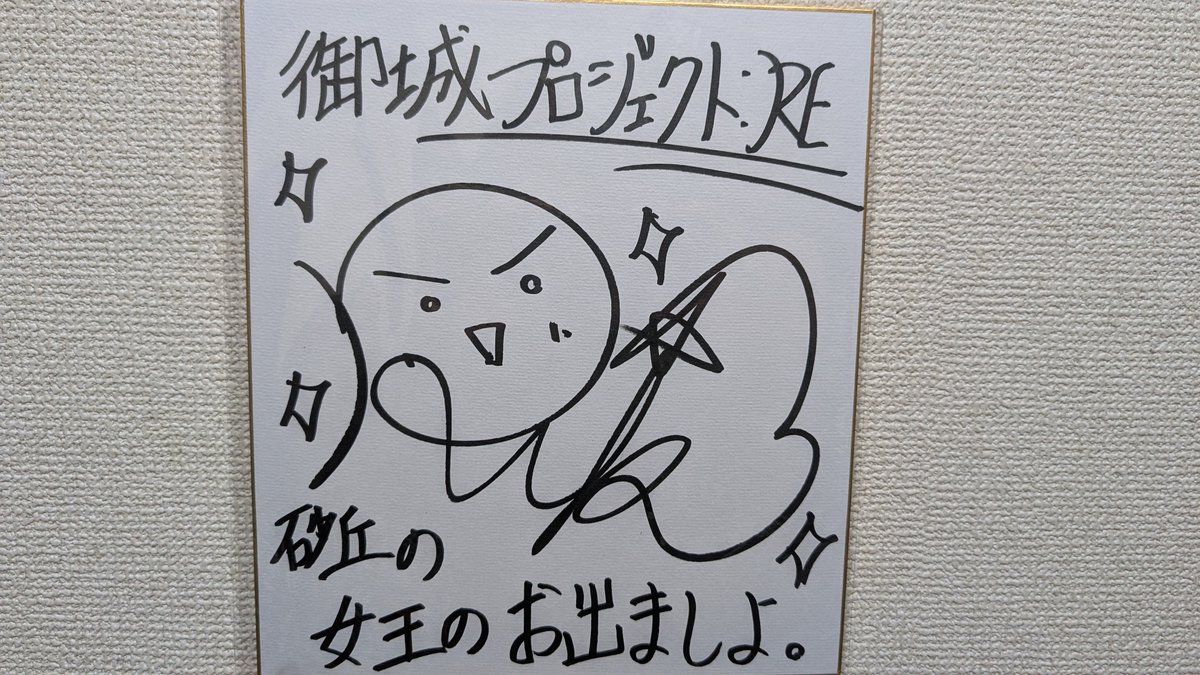 御城プロジェクト:RE
砂丘の
女王のお出ましよ。